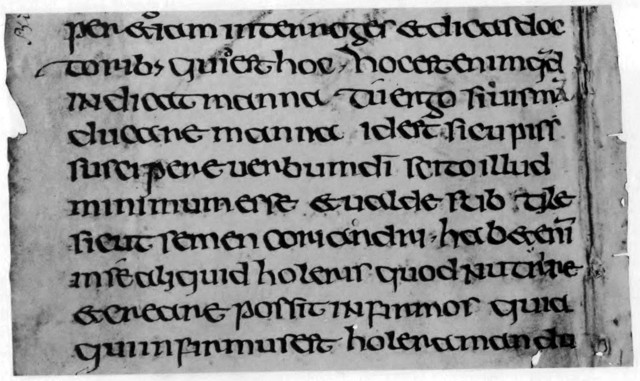 per etiam interroges et dicas doc
torib; quid est hoc, hoc est enim qd
indicat manna tu ergo si uis mā
ducare manna id est si cupis
suscipere uerbum dī scito illud
minimum esse et ualde subtile
sicut semen coriandri, habet enī
in se aliquid holeris quod nutrire
et creare possit infirmos quia
qui infirmus est holera mandu